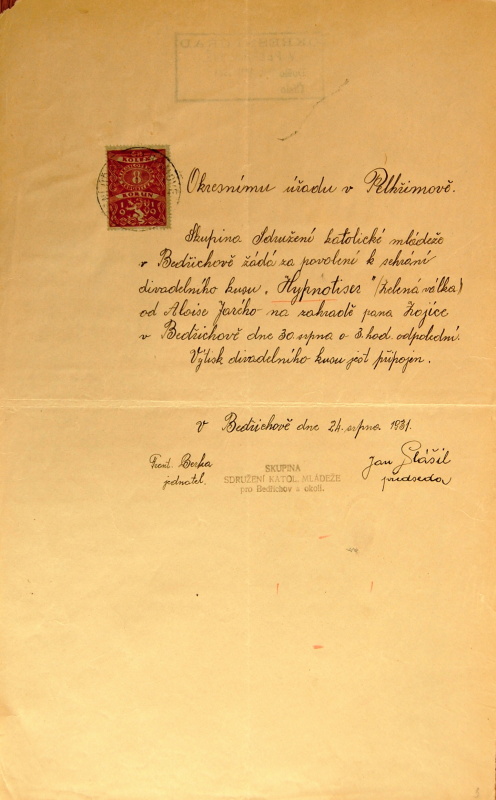 KOLEK
8
KORUN
Okresnímu úřadu v Pelhřimově.
Skupina Sdružení katolické mládeže
v Bedřichově žádá za povolení k sehrání
divadelního kusu „Hypnotiser" (Zelená válka)
od Aloise Jarého na zahradě pana Zajíce
v Bedřichově dne 30. srpna o 3. hod. odpolední.
Výtisk divadelního kusu jest připojen.
V Bedřichově dne 24. srpna 1931.
Frant. Berka
jednatel.
SKUPINA
SDRUŽENÍ KATOL. MLÁDEŽE
pro Bedřichov a okolí.
Jan
předseda